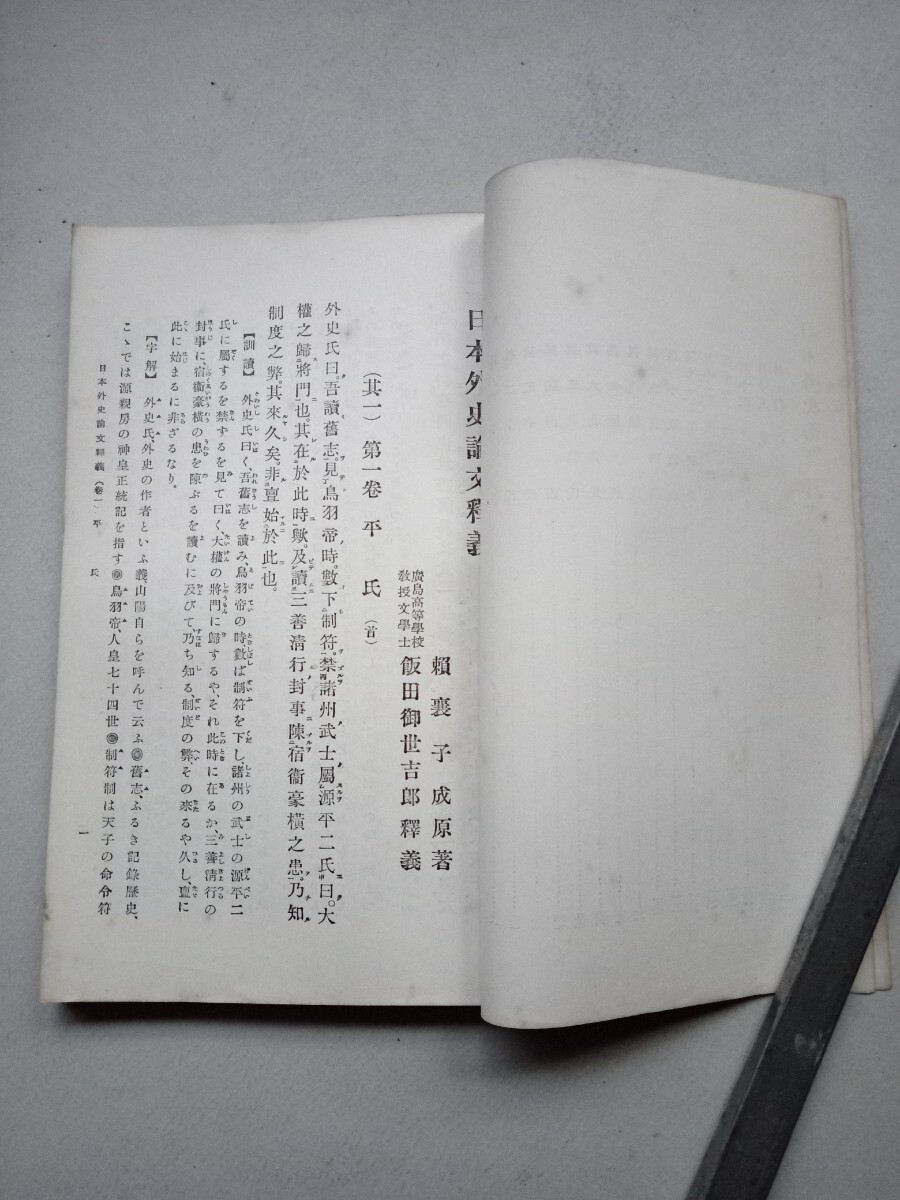 日本外史論文釋義
賴襄子成原著
廣島高等學校
敎授文學士
飯田御世吉郎釋義
(其一)第一卷 平 氏(首)
外史氏曰。吾讀舊志。見鳥羽帝時。數下制符。禁諸州武士屬源平二氏曰。大
權之歸將門也。其在於此時歟。及讀三善淸行封事陳宿衞豪橫之患。乃知
制度之弊。其來久矣。非亶始於此也。
【訓讀】 外史氏曰く、吾舊志を讀み、鳥羽帝の時數ば制符を下し、諸州の武士の源平二
氏に屬するを禁ずるを見て曰く、大權の將門に歸するや、それ此時に在るか、三善淸行の
封事に、宿衞豪橫の患を陳ぶるを讀むに及びて、乃ち知る、制度の弊、その來るや久し、亶に
此に始まるに非ざるなり。
【字解】 外史氏、外史の作者といふ義、山陽自らを呼んで云ふ◎舊志、ふるき記錄歷史、
こゝでは源親房の神皇正統記を指す◎鳥羽帝、人皇七十四世◎制符制は天子の命令符
日本外史論文釋義(卷一)平 氏
一